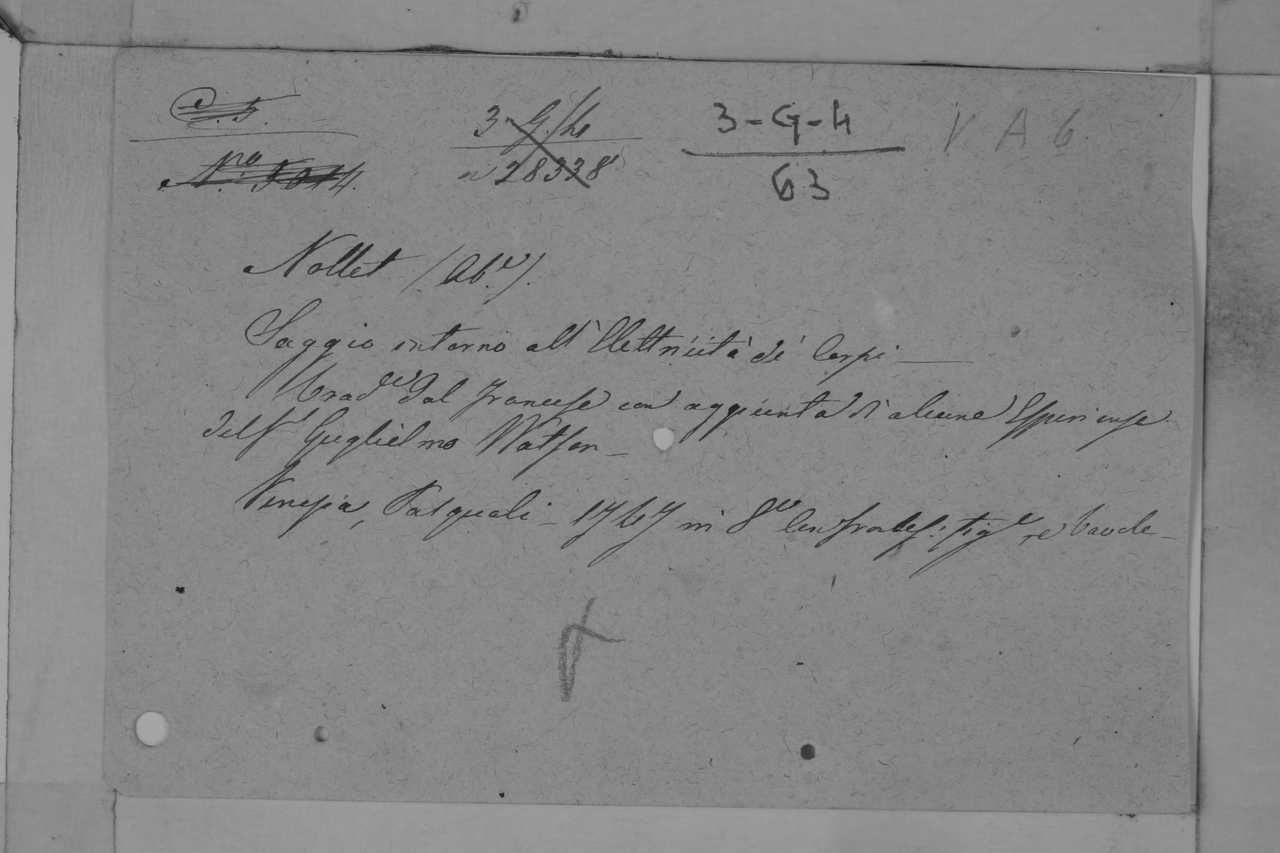 C. 5.
3-G-4
V A 6
N.ro 5014.
n 28328
63
Nollet (Ab.e).
Saggio intorno all'Elettricità de' Corpi —
Trad.e dal Francese con aggiunta di alcune Esperienze
del S.r Guglielmo Watson —
Venezia, Pasquali — 1747 in 8.o con frontesp: fig.e e tavole —